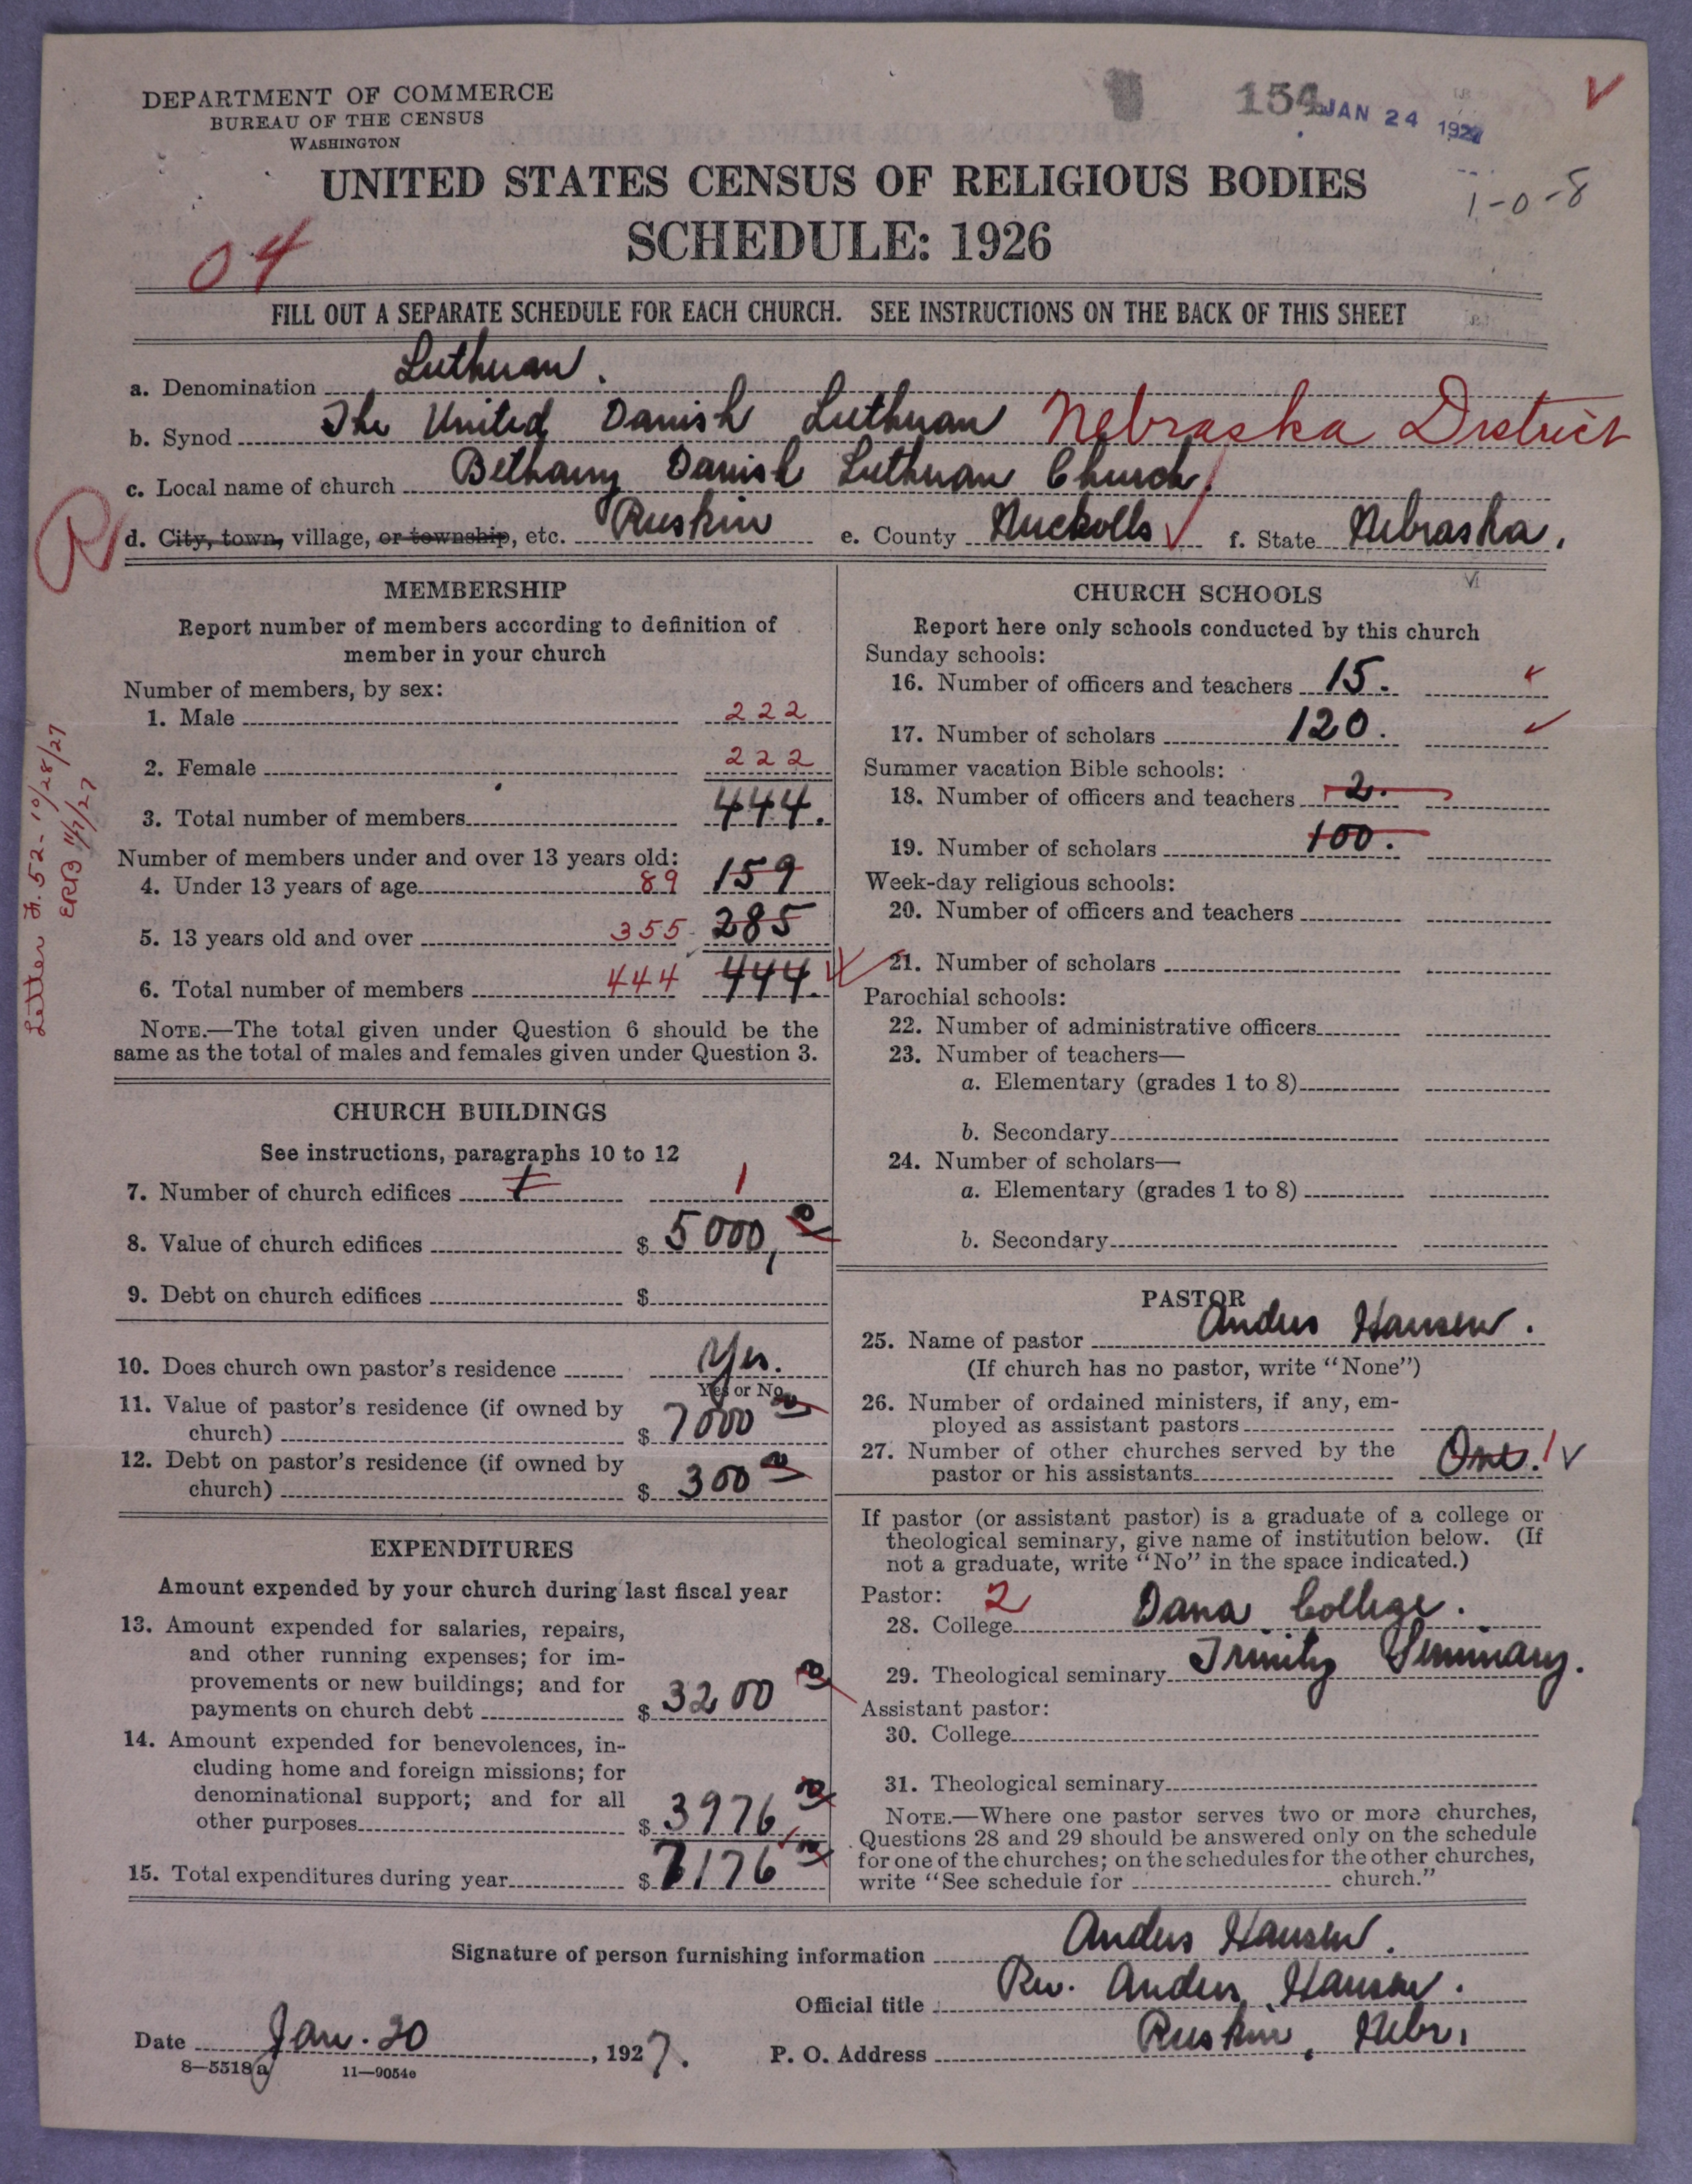 DEPARTMENT OF COMMERCE
BUREAU OF THE CENSUS
WASHINGTON
154 JAN 24 1927
V
1-0-8
UNITED STATES CENSUS OF RELIGIOUS BODIES
SCHEDULE: 1926
04
FILL OUT A SEPARATE SCHEDULE FOR EACH CHURCH. SEE INSTRUCTIONS ON THE BACK OF THIS SHEET
a. Denomination Lutheran.
b. Synod The United Danish Lutheran Nebraska District
c. Local name of church Bethany Danish Lutheran Church
R
d. City, town, village, or township, etc. Ruskin e. County Nuckolls f. State Nebraska.
Letter F. 52 - 10/28/27
ERB 11/7/27
MEMBERSHIP
Report number of members according to definition of
member in your church
Number of members, by sex:
1. Male 222
2. Female 222
3. Total number of members 444.
Number of members under and over 13 years old:
4. Under 13 years of age 89 159
5. 13 years old and over 355 285
6. Total number of members 444 444.
NOTE.—The total given under Question 6 should be the
same as the total of males and females given under Question 3.
CHURCH BUILDINGS
See instructions, paragraphs 10 to 12
7. Number of church edifices 1 1
8. Value of church edifices $ 5000,
9. Debt on church edifices $
10. Does church own pastor's residence Yes.
Yes or No
11. Value of pastor's residence (if owned by
church) $ 7000
12. Debt on pastor's residence (if owned by
church) $ 300
EXPENDITURES
Amount expended by your church during last fiscal year
13. Amount expended for salaries, repairs,
and other running expenses; for im-
provements or new buildings; and for
payments on church debt $ 3200
14. Amount expended for benevolences, in-
cluding home and foreign missions; for
denominational support; and for all
other purposes $ 3976,
15. Total expenditures during year $ 7176
CHURCH SCHOOLS
Report here only schools conducted by this church
Sunday schools:
16. Number of officers and teachers 15.
17. Number of scholars 120.
Summer vacation Bible schools:
18. Number of officers and teachers 2.
19. Number of scholars 100.
Week-day religious schools:
20. Number of officers and teachers
21. Number of scholars
Parochial schools:
22. Number of administrative officers
23. Number of teachers—
a. Elementary (grades 1 to 8)
b. Secondary
24. Number of scholars—
a. Elementary (grades 1 to 8)
b. Secondary
PASTOR
25. Name of pastor Anders Hansen.
(If church has no pastor, write "None")
26. Number of ordained ministers, if any, em-
ployed as assistant pastors
27. Number of other churches served by the
pastor or his assistants One. 1
If pastor (or assistant pastor) is a graduate of a college or
theological seminary, give name of institution below. (If
not a graduate, write "No" in the space indicated.)
Pastor: 2
28. College Dana College.
29. Theological seminary Trinity Seminary.
Assistant pastor:
30. College
31. Theological seminary
NOTE.—Where one pastor serves two or more churches,
Questions 28 and 29 should be answered only on the schedule
for one of the churches; on the schedules for the other churches,
write "See schedule for church."
Signature of person furnishing information Anders Hansen.
Official title Rev. Anders Hansen.
Date Jan. 20, 1927. P. O. Address Ruskin, Nebr.
8—5518a 11—9054e